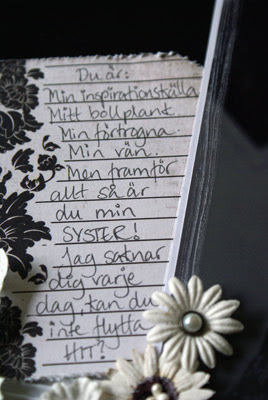 Du är:
Min inspirationskälla
Mitt bollplank.
Min förtrogna.
Min vän.
Men framför
allt så är
du min
SYSTER!
Jag saknar
dig varje
dag, kan du
inte flytta
HIT?